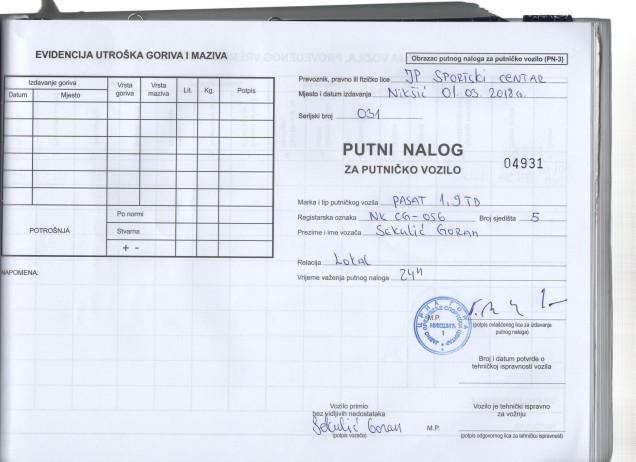 EVIDENCIJA UTROŠKA GORIVA I MAZIVA
Izdavanje goriva
Datum
Mjesto
Vrsta goriva
Vrsta maziva
Lit.
Kg.
Potpis
POTROŠNJA
Po normi
Stvarna
+ -
NAPOMENA:
Obrazac putnog naloga za putničko vozilo (PN-3)
Prevoznik, pravno ili fizičko lice JP SPORTSKI CENTAR
Mjesto i datum izdavanja Nikšić 01.03.2018 G.
Serijski broj 031
PUTNI NALOG
ZA PUTNIČKO VOZILO
04931
Marka i tip putničkog vozila PASAT 1,9 TD
Registarska oznaka NK CG-056 Broj sjedišta 5
Prezime i ime vozača Sekulić Goran
Relacija Lokal
Vrijeme važenja putnog naloga 24h
M.P.
(potpis ovlašćenog lica za izdavanje
putnog naloga)
Broj i datum potvrde o
tehničkoj ispravnosti vozila
Vozilo primio
bez vidljivih nedostataka
Sekulić Goran
(potpis vozača)
M.P.
Vozilo je tehnički ispravno
za vožnju
(potpis odgovornog lica za tehničku ispravnost)